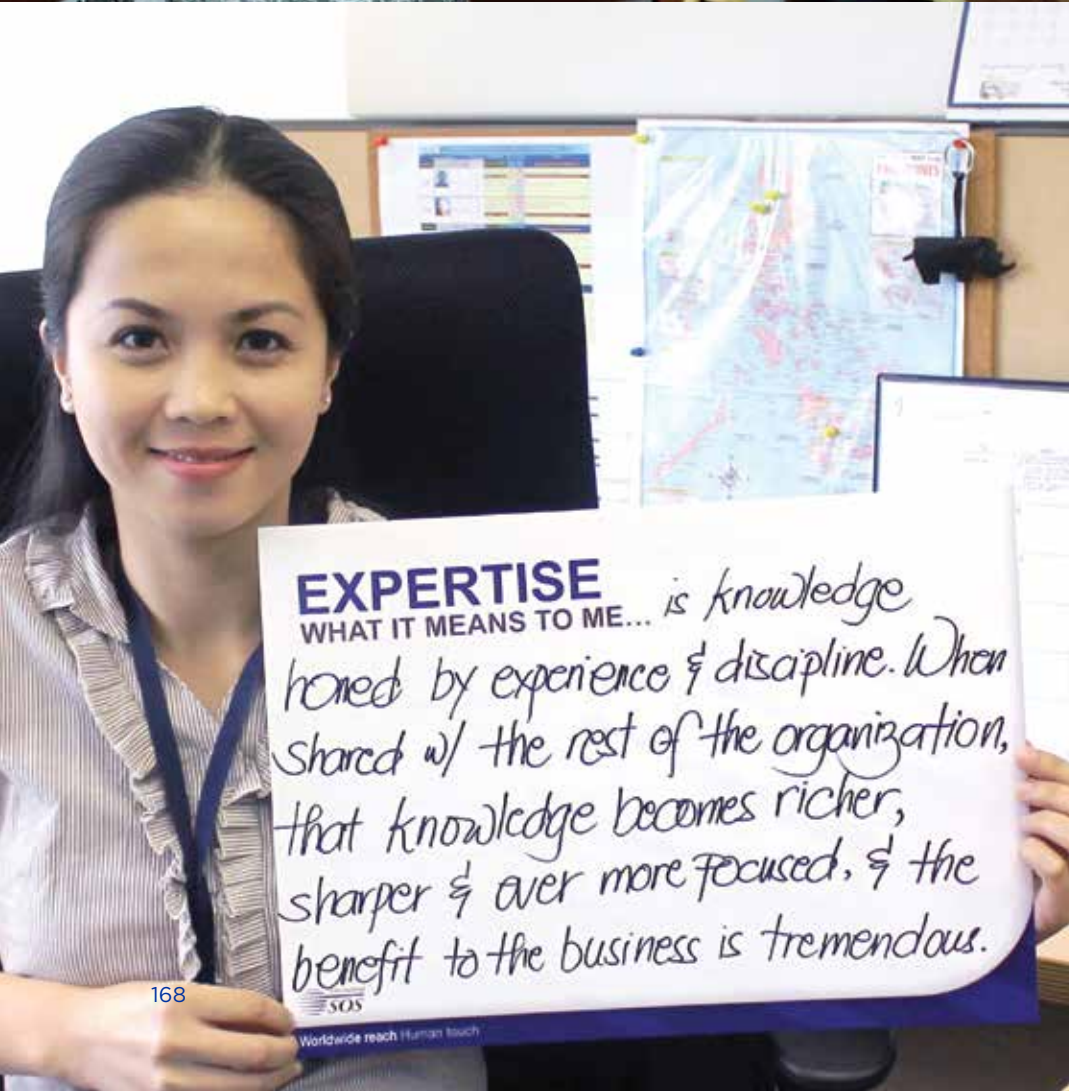 EXPERTISE
WHAT IT MEANS TO ME... is knowledge
honed by experience & discipline. When
shared w/ the rest of the organization,
that knowledge becomes richer,
sharper & ever more focused, & the
benefit to the business is tremendous.
168
SOS
Worldwide reach Human touch